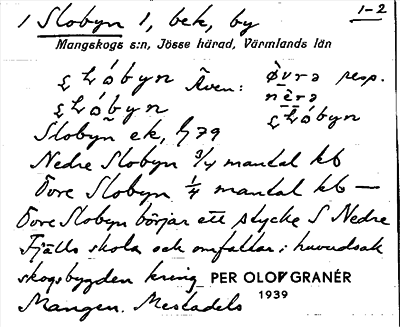 1 Slobyn 1, bek, by 1-2
Mangskogs s:n, Jösse härad, Värmlands län
Även: resp.
Slobyn ek, G79
Nedre Slobyn 3/4 mantal kb
Övre Slobyn 1/4 mantal kb —
Övre Slobyn börjar ett stycke S Nedre
Fjälls skola och omfattar i huvudsak
skogsbygden kring PER OLOF GRANÉR
Mangen. Mestadels 1939